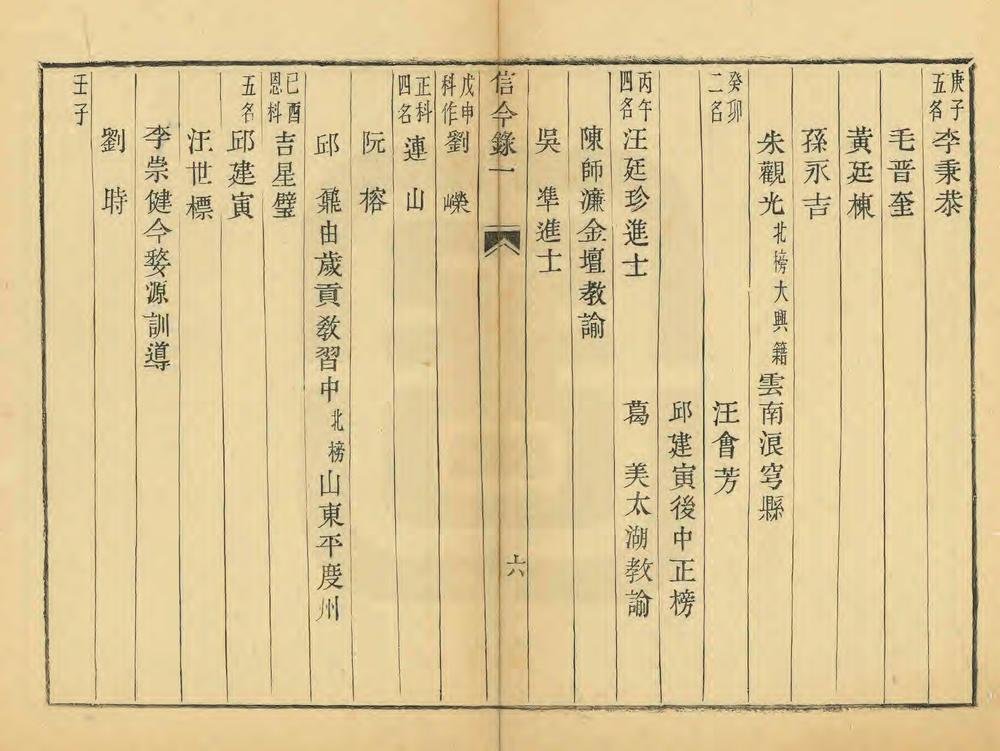 庚子五名李秉恭
毛晋奎
黃廷棟
孫永吉
朱觀光北榜大興籍雲南浪穹縣
癸卯二名　汪會芳
邱建寅後中正榜
丙午四名汪廷珍進士　葛　美太湖教諭
陳師濂金壇教諭
吳　準進士
信今錄一　六
戊申科作正科四名劉　嶸
連　山
阮　榕
邱　鼐由歲貢教習中北榜山東平度州
己酉恩科五名吉星璧
邱建寅
汪世標
李崇健今婺源訓導
劉　時
壬子